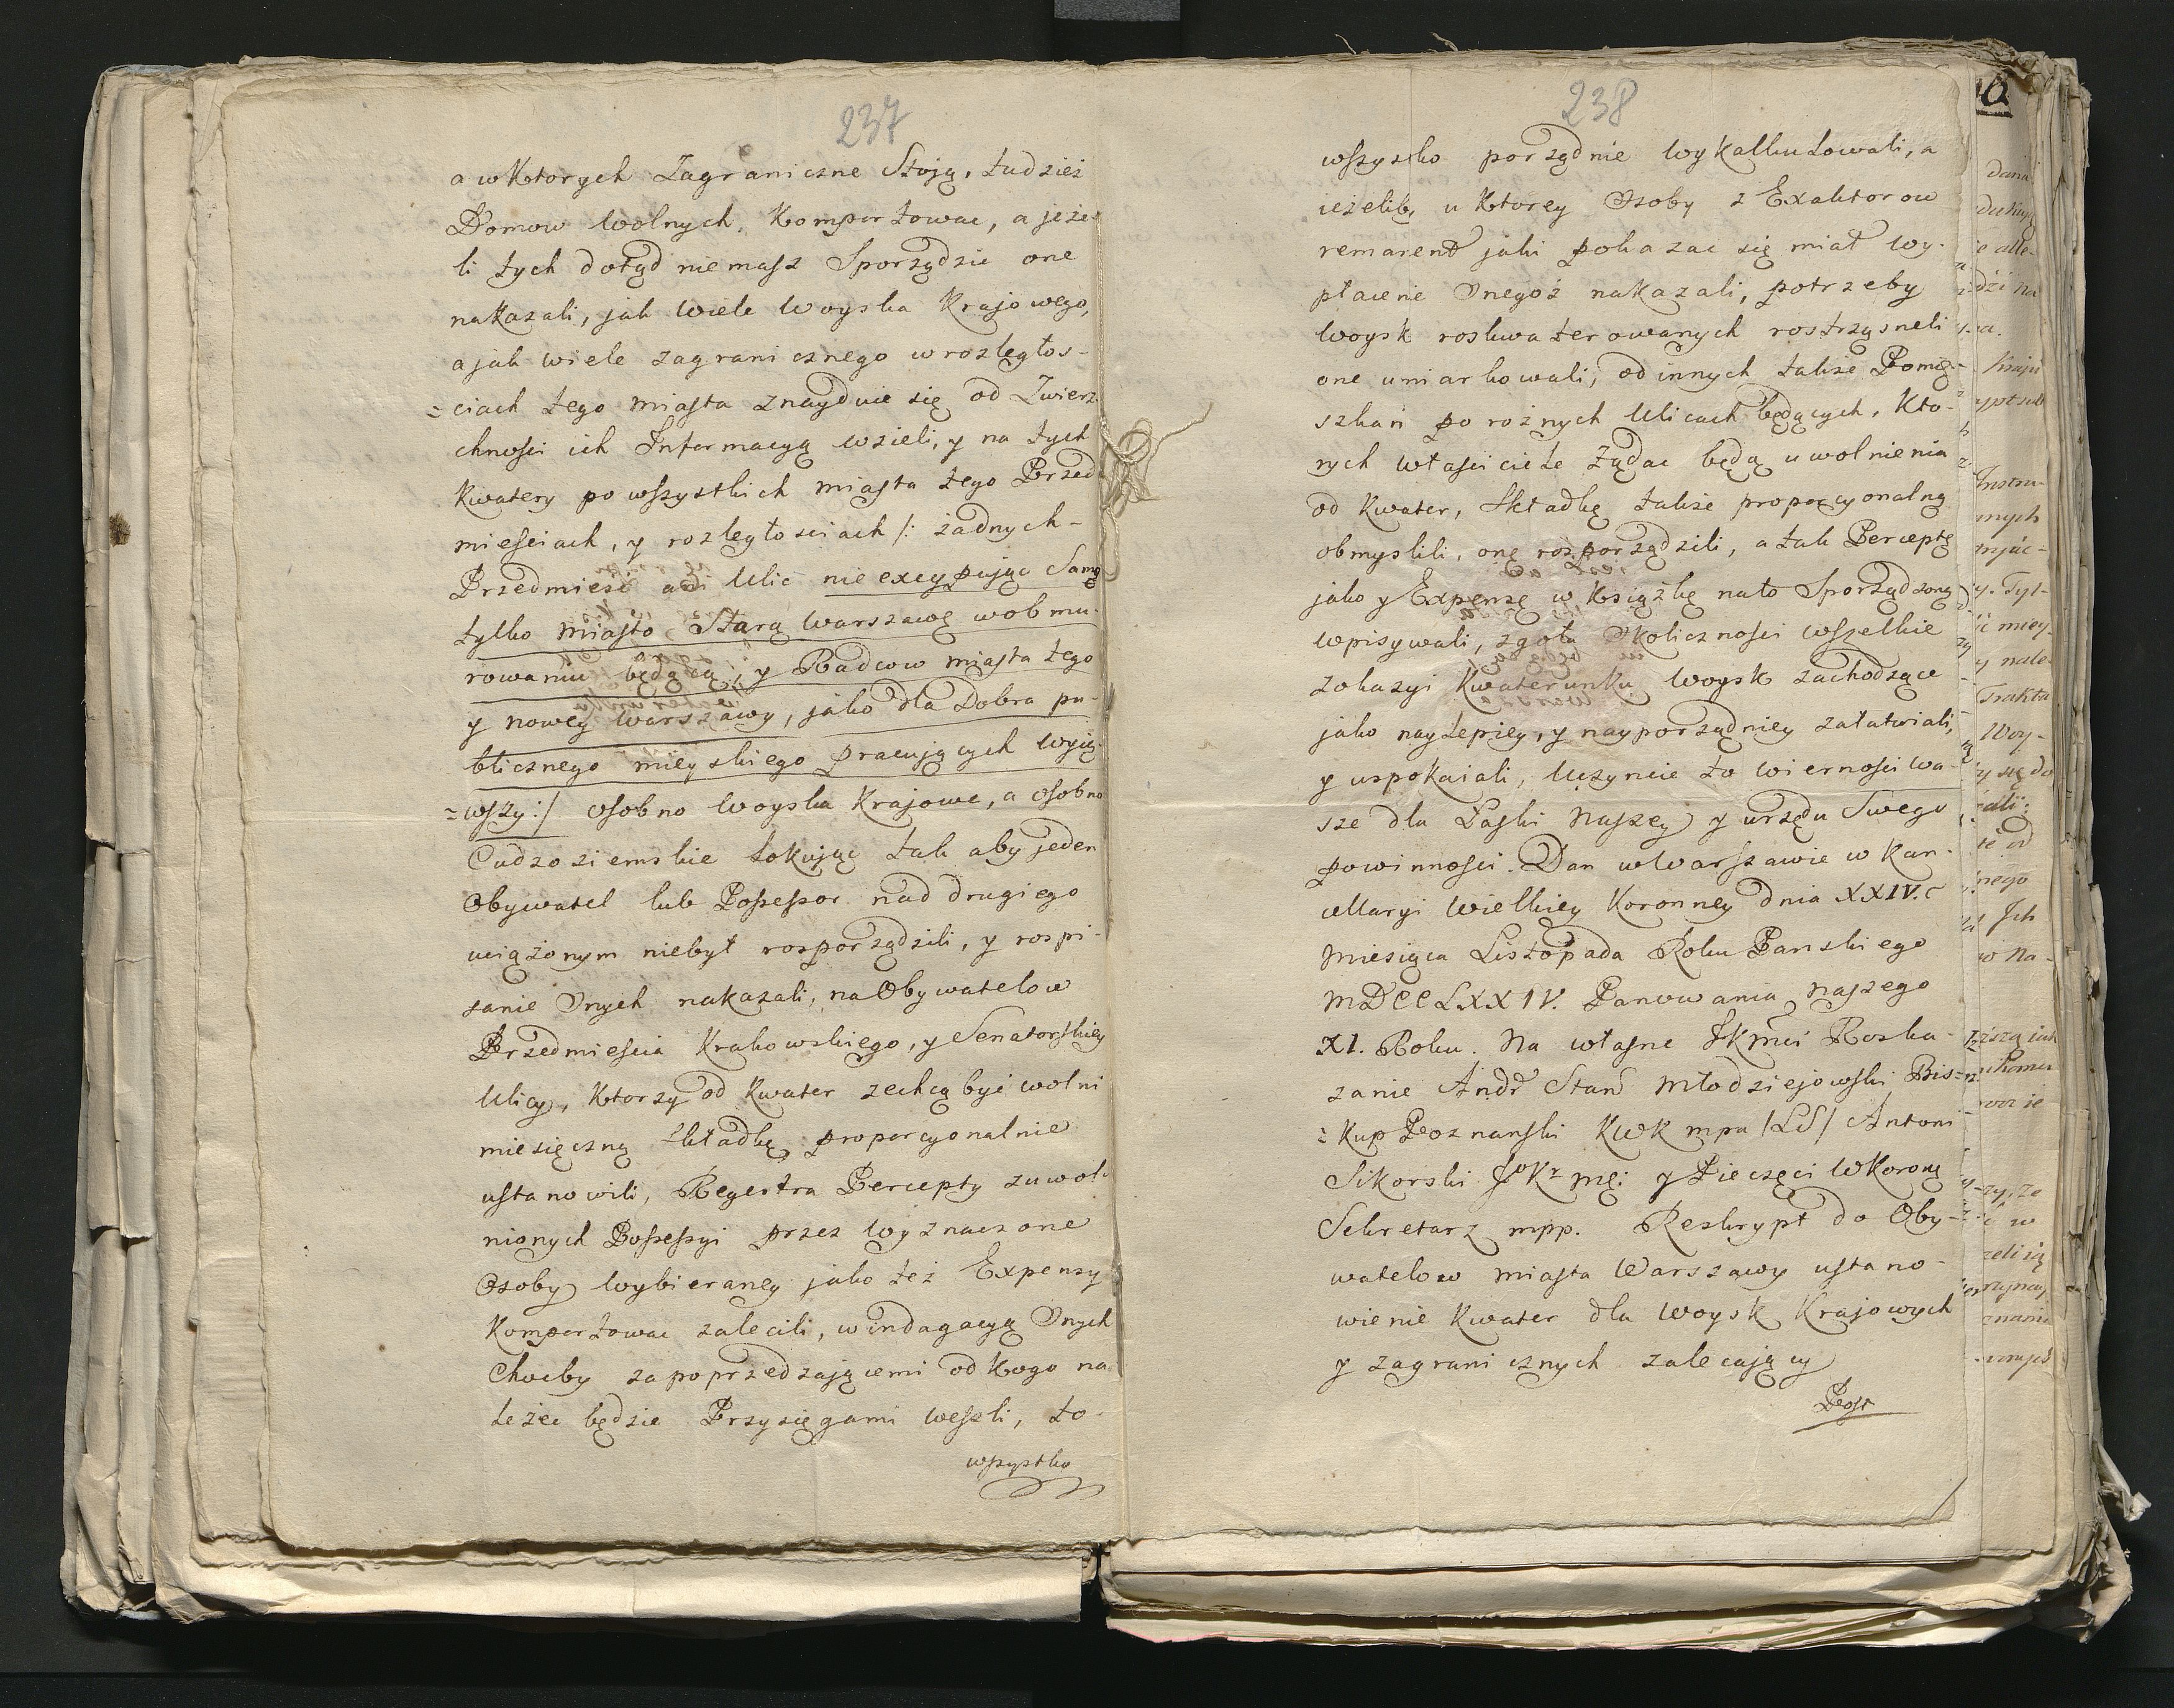 237
a w Ktorych Zagraniczne Stoją, tudzież
Domow wolnych, Komportowac, a jeże-
li tych dotąd niemasz Sporządzic one
nakazali, jak wiele woyska Krajowego,
a jak wiele zagranicznego w rozległos-
=ciach tego miasta znayduie się od Zwierz-
chnosci ich Informacyą wzieli, y na tych
Kwatery po wszystkich miasta tego Przed
miesciach, y rozległosciach /: żadnych-
Przedmiesc ani Ulic nie excypując Samę
tylko miasto Starą Warszawę w obmu-
rowaniu będącą, y Radcow miasta tego
y nowey Warszawy, jako dla Dobra pu-
blicznego mieyskiego pracujących wyią-
=wszy :/ osobno woyska Krajowe, a osobno
Cudzoziemskie lokując tak aby jeden
Obywatel lub Possessor nad drugiego
uciążonym niebył rosporządzili, y rospi-
sanie Onych nakazali, na Obywatelow
Przedmiescia Krakowskiego, y Senatorskiey
Ulicy, Ktorzy od Kwater zechcą być wolni
miesięczną składkę proporcyonalnie
ustanowili, Regestra Percepty z uwol-
nionych Possessyi przez wyznaczone
Osoby wybieraney jako też Expensy
Komportowac zalecili, w indagacyą Onych
Choćby za poprzedzającemi od Kogo na
leżec będzie Przysięgami weszli, to-
wszystko
238
wszystko porządnie wykalkulowali, a
ieżeliby u Ktorey Osoby z Exaktorow
remanent jaki pokazac się miał wy-
płacenie Onegoż nakazali, potrzeby
woysk roskwaterowanych rostrząsneli
one umiarkowali, od innych także Pomię-
szkań po rożnych Ulicach będących, Kto-
rych własciciele Żądac będą uwolnienia
od Kwater, składkę także proporcyonalną
obmyslili, onę rosporządzili, a tak Perceptę
jako y Expensę w Książkę nato Sporządzoną
wpisywali, zgoła Okolicznosci wszelkie
z okazyi Kwaterunku woysk zachodzące
jako naylepiey, y nayporządniey załatwiali,
y uspokaiali, Uczynicie to wiernosci wa-
sze dla Łaski Naszey y urzędu Swego
powinnosci. Dan w Warszawie w Kan-
cellaryi Wielkiey Koronney dnia XXIV.
Miesiąca Listopada Roku Panskiego
MDCCLXXIV. Panowania naszego
XI. Roku. Na własne JKmci Roska-
zanie Andr Stan Młodziejowski Bis=
=kup Poznanski KWK mpa /LS/ Antoni
Sikorski JoKr mci y Pieczęci W Koronę
Sekretarz mpp. Reskrypt do Oby-
watelow miasta Warszawy ustano-
wienie Kwater dla woysk Krajowych
y zagranicznych zalecający
Post